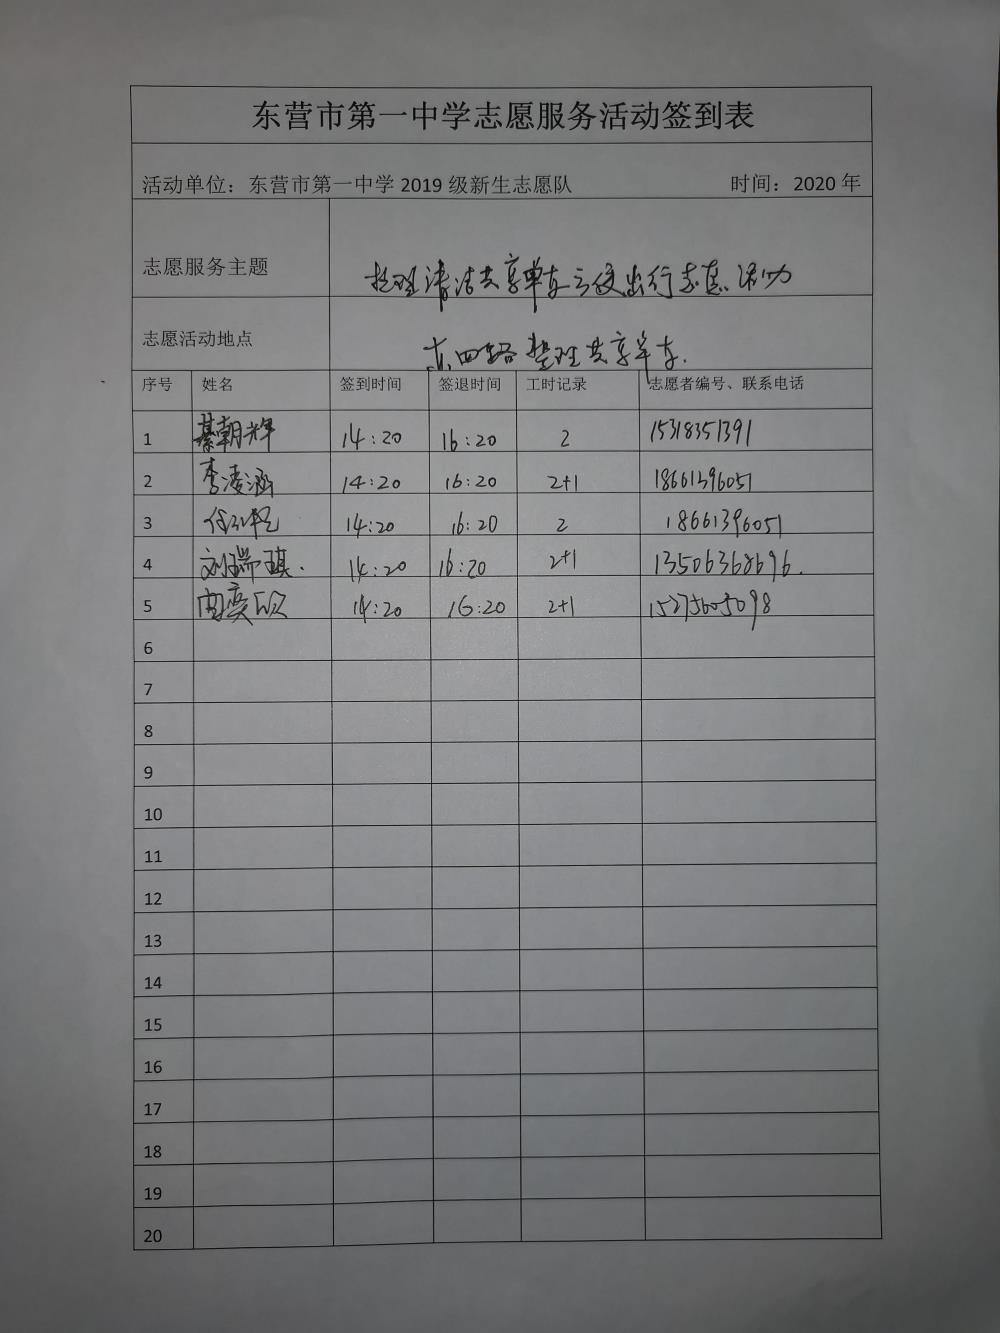 东营市第一中学志愿服务活动签到表
活动单位：东营市第一中学 2019 级新生志愿队 时间：2020 年
志愿服务主题 梳理清洁共享单车方便出行志愿活动
志愿活动地点 东四路整理共享单车.
序号 姓名 签到时间 签退时间 工时记录 志愿者编号、联系电话
1 綦朝辉 14:20 16:20 2 15318351391
2 李凌涵 14:20 16:20 2+1 18661396051
3 14:20 16:20 2 18661396051
4 刘瑞琪. 14:20 16:20 2+1 13506368696.
5 14:20 16:20 2+1 15275605098
6
7
8
9
10
11
12
13
14
15
16
17
18
19
20